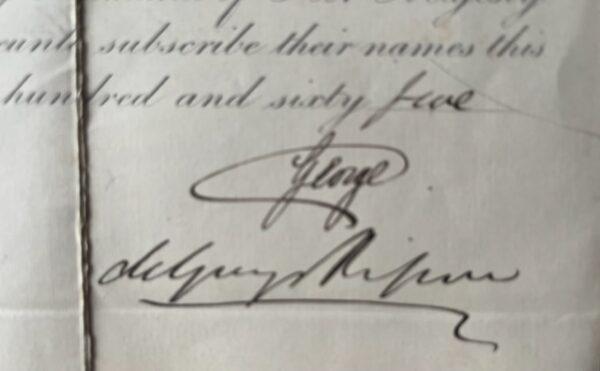 of Her Majesty
subscribe their names this
hundred and sixty five
George
de Grey & Ripon